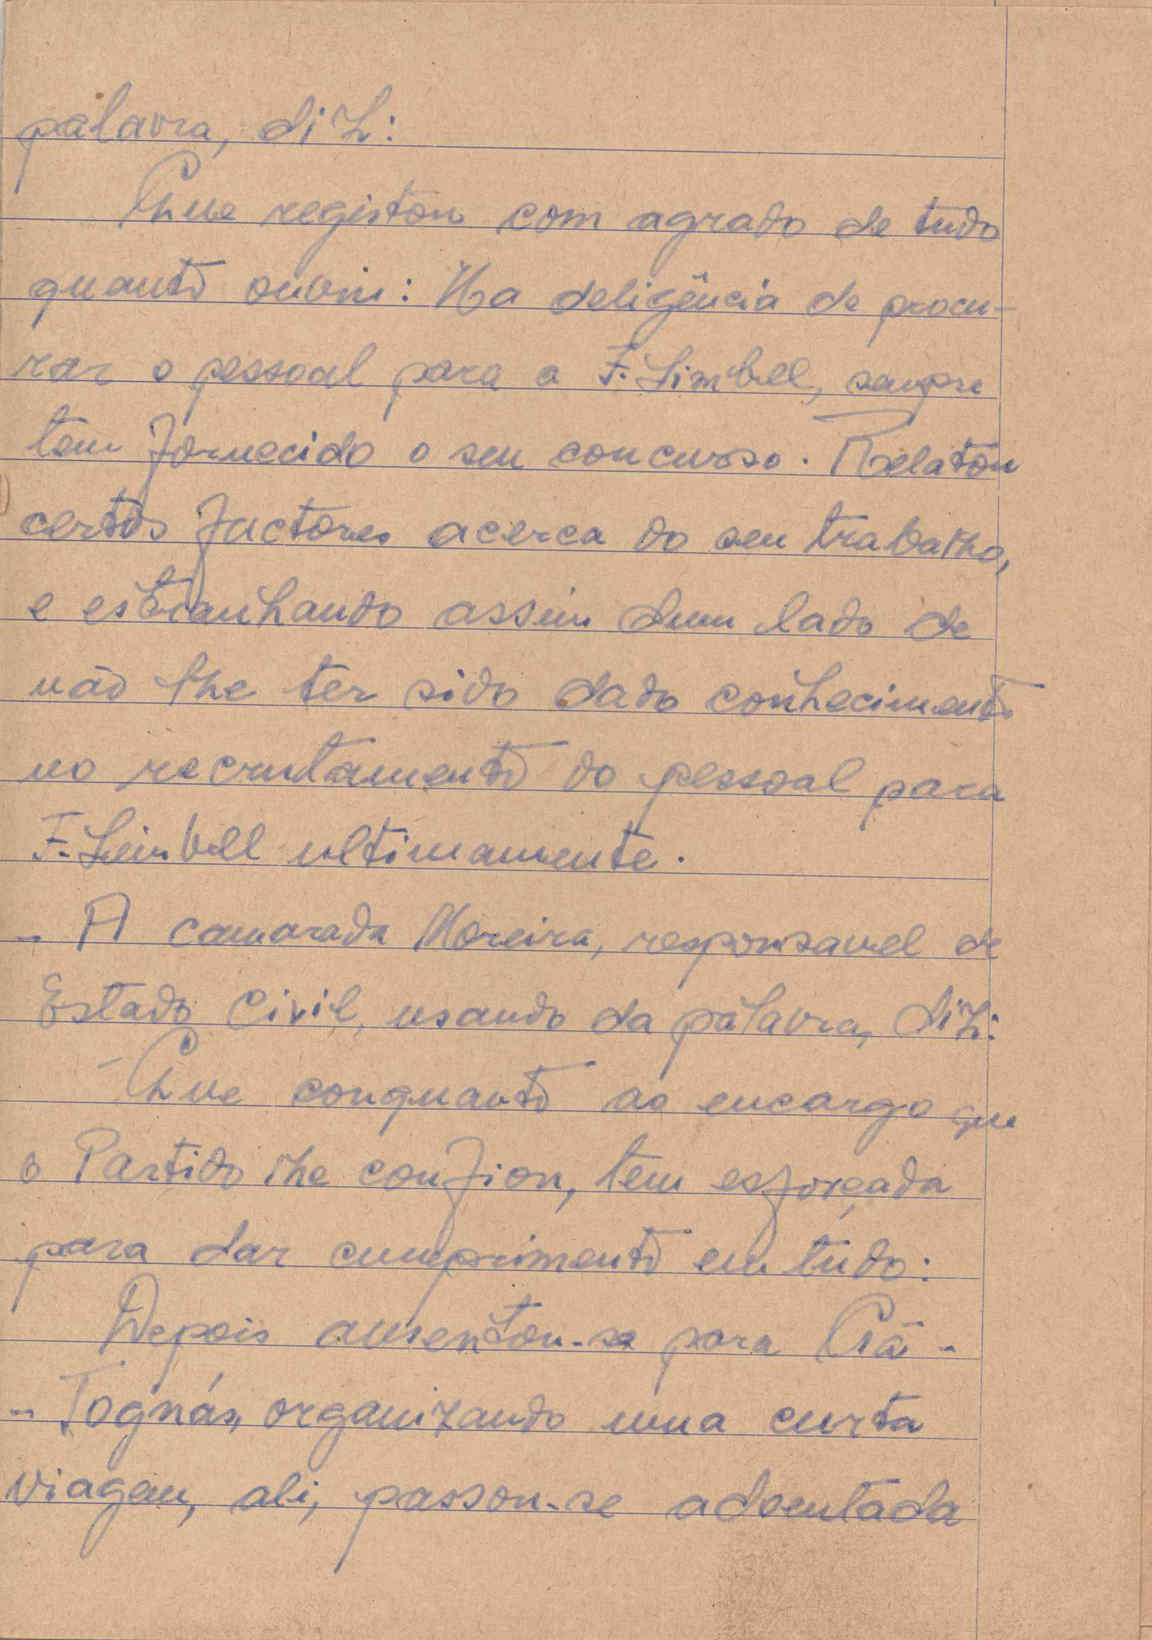 palavra, diz:
Que registou com agrado de tudo
quanto ouviu: Na deligência de procu-
rar o pessoal para a F. Limbell, sempre
tem fornecido o seu concurso. Relatou
certos factores acerca do seu trabalho,
e estranhando assim dum lado de
não lhe ter sido dado conhecimento
no recrutamento do pessoal para
F. Limbell ultimamente.
- A camarada Moreira, responsavel de
Estado Civil, usando da palavra, diz:
- Que conquanto ao encargo que
o Partido lhe confiou, tem esforçada
para dar cumprimento em tudo:
Depois ausentou-se para Cã-
- Tognás, organizando uma curta
viagem, ali, passou-se adoentada